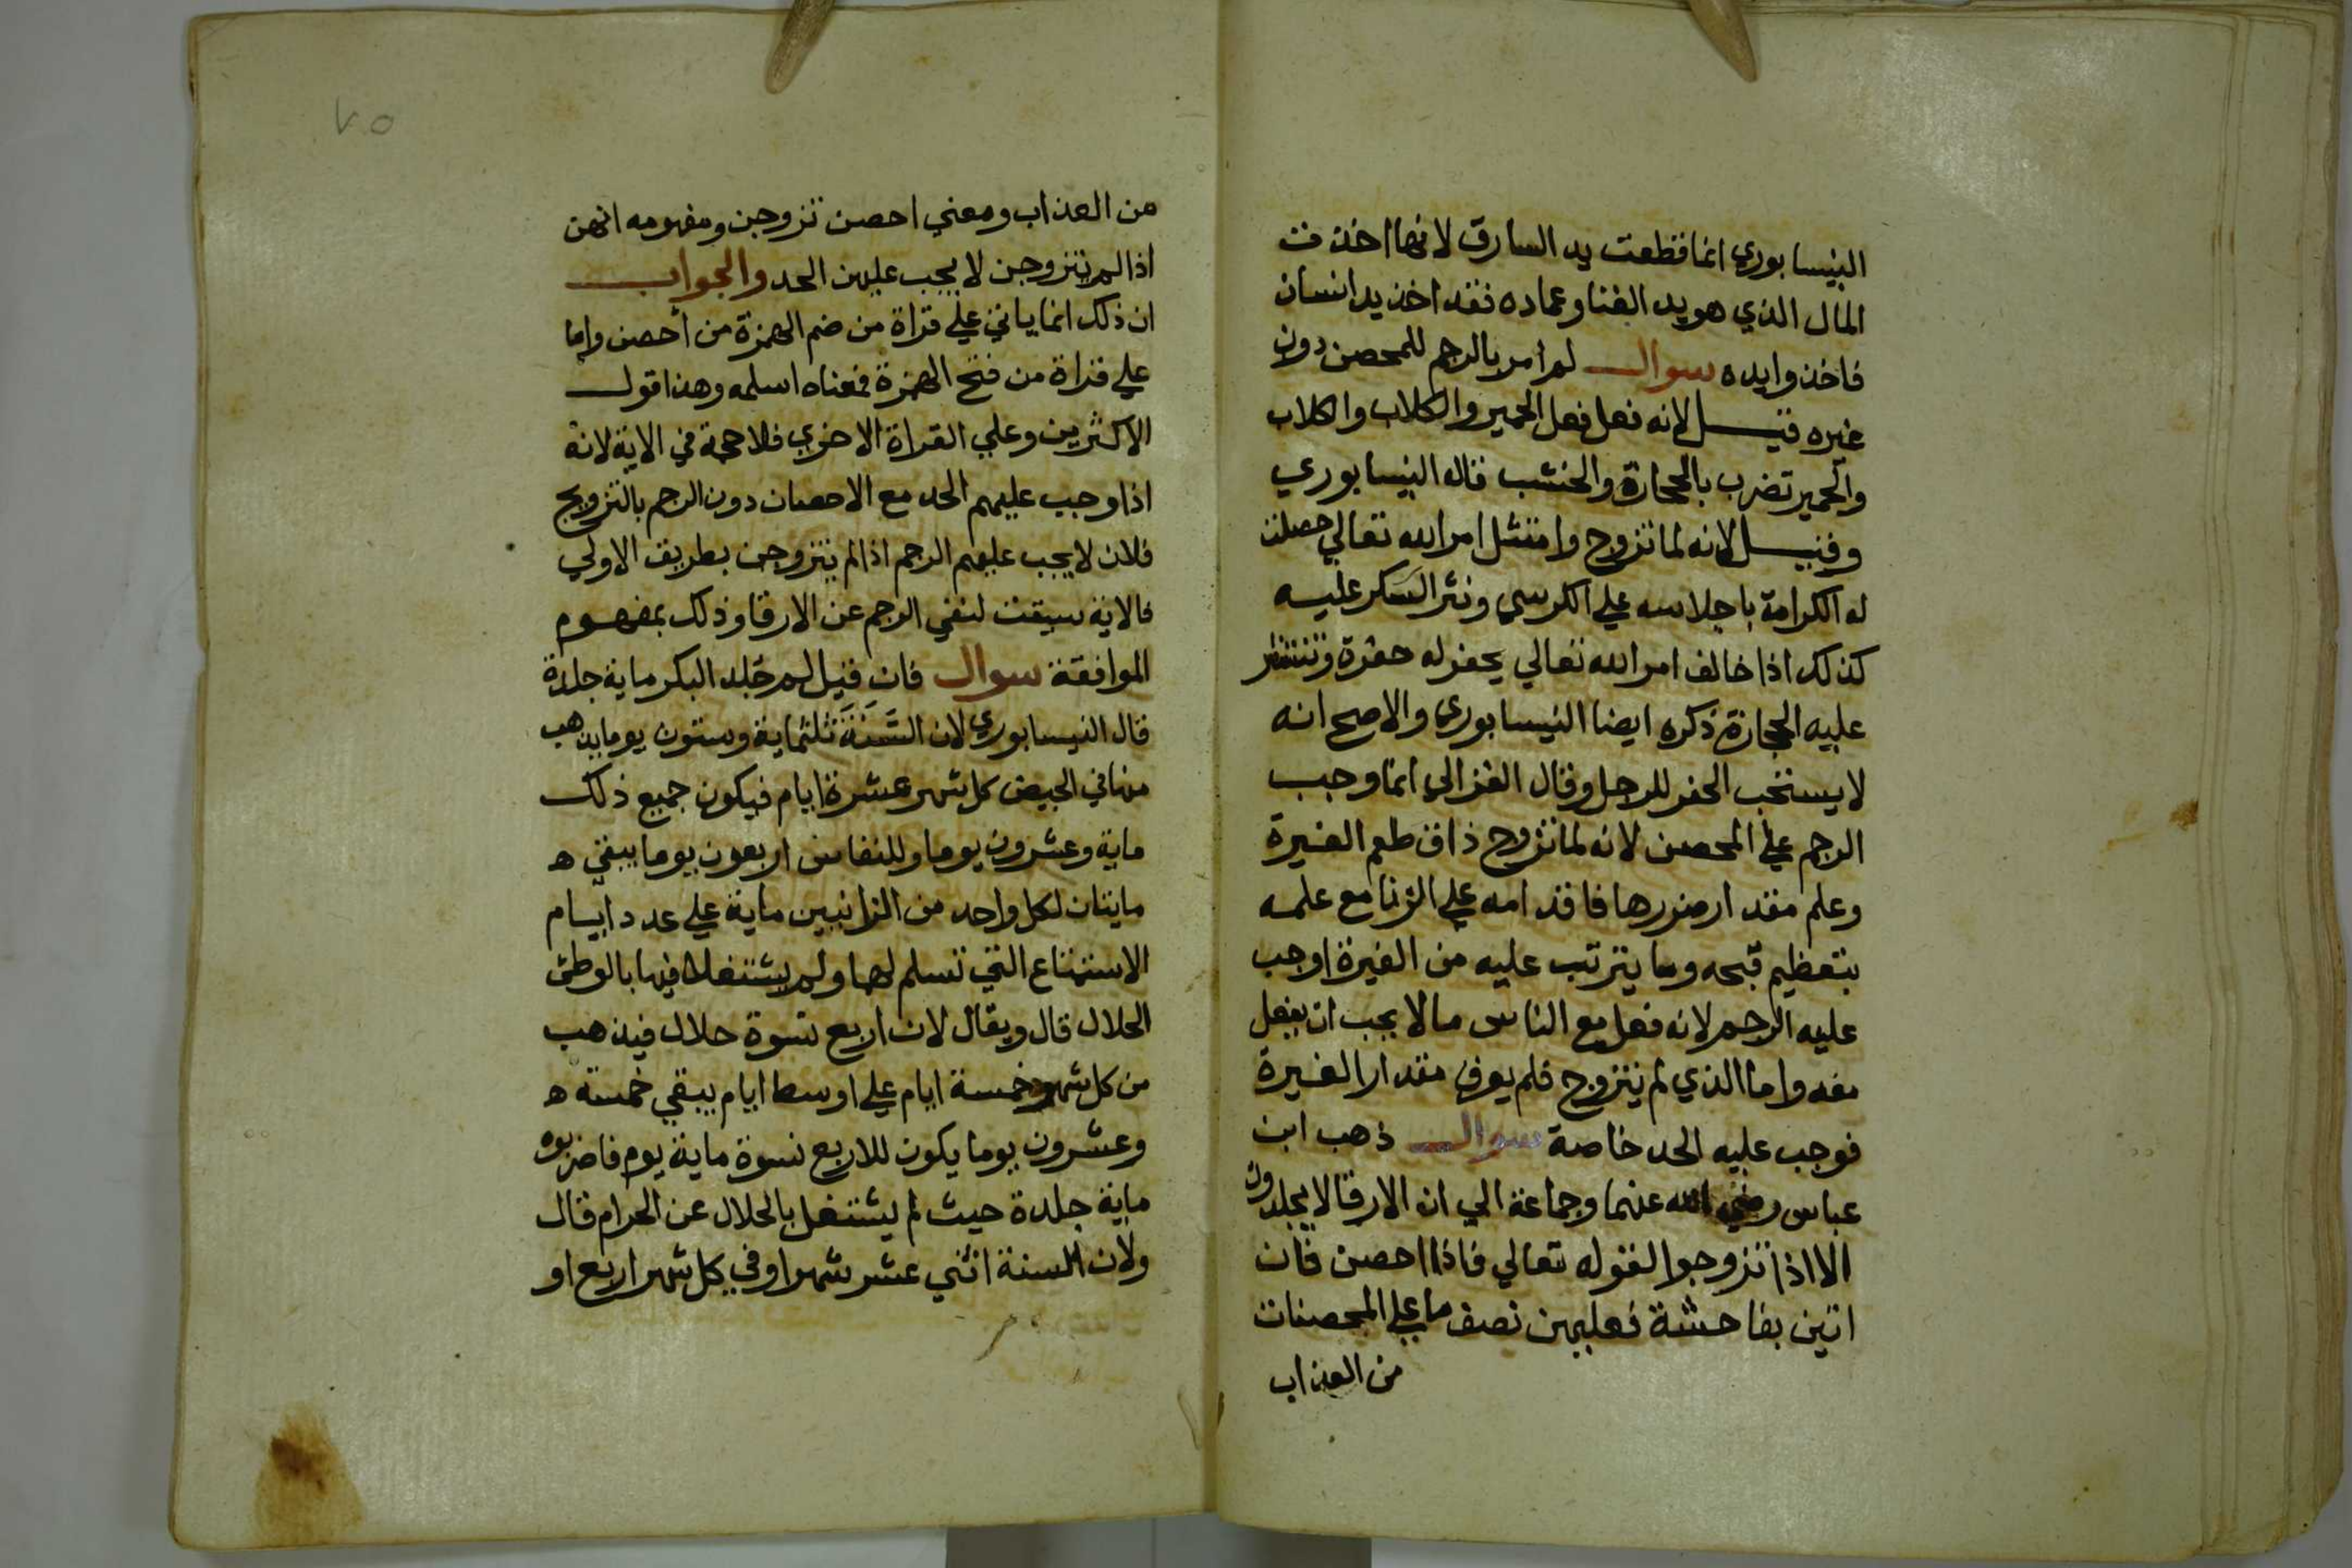 النيسابوري انما قطعت يد السارق لانها اخذت
المال الذي هو يد الغنا وعماده فقد اخذ يد انسان
فاخذوا يده سوال لم امر بالرجم للمحصن دون
غيره قيل لانه فعل فعل الحمير والكلاب والكلاب
والحمير تضرب بالحجارة والخشب قاله النيسابوري
وقيل لانه لما تزوج وامتثل امر الله تعالي حصلت
له الكرامة باجلاسه علي الكرسي ونثر السكر عليه
كذلك اذا خالف امر الله تعالي يحفر له حفرة وتنتثر
عليه الحجارة ذكره ايضا النيسابوري والاصح انه
لا يستحب الحفر للرجل وقال الغزالي انما وجب
الرجم علي المحصن لانه لما تزوج ذاق طعم الغيرة
وعلم مقدار ضررها فاقدامه علي الزنا مع علمه
بتعظيم قبحه وما يترتب عليه من الغيرة اوجب
عليه الرجم لانه فعل مع الناس مالا يجب ان يفعل
معه واما الذي لم يتزوج فلم يعرف مقدار الغيرة
فوجب عليه الحد خاصة سوال ذهب ابن
عباس رضي الله عنهما وجماعة الي ان الارقا لا يجلدون
الا اذا تزوجوا لقوله تعالي فاذا احصن فان
اتين بفاحشة فعليهن نصف ما علي المحصنات
من العذاب
٧٥
من العذاب ومعني احصن تزوجن ومفهومه انهن
اذا لم يتزوجن لا يجب عليهن الحد والجواب
ان ذلك انما ياتي علي قراة من ضم الهمزة من أحصن واما
علي قراة من فتح الهمزة فمعناه اسلمه وهذا قول
الاكثرين وعلي القراة الاخري فلا حجة في الاية لانه
اذا وجب عليهم الحد مع الاحصان دون الرجم بالتزويج
فلان لا يجب عليهم الرجم اذا لم يتزوجن بطريق الاولي
فالاية سيقت لنفي الرجم عن الارقا وذلك بمفهوم
الموافقة سوال فان قيل لم جلد البكر ماية جلدة
قال النيسابوري لان السَّنَةَ ثلثماية وستون يوما يذهب
منها في الحيض كل شهر عشرة ايام فيكون جميع ذلك
ماية وعشرون يوما وللنفاس اربعون يوما يبقي ه
مايتان لكل واحد من الزانيين ماية علي عدد ايام
الاستمتاع التي تسلم لهما ولم يشتغلا فيها بالوطئ
الحلال قال ويقال لان اربع نسوة حلال فيذهب
من كل شهر خمسة ايام علي اوسط ايام يبقي خمسة ه
وعشرون يوما يكون للاربع نسوة ماية يوم فاضربوه
ماية جلدة حيث لم يشتغل بالحلال عن الحرام قال
ولان السنة اثني عشر شهرا وفي كل شهر اربع او